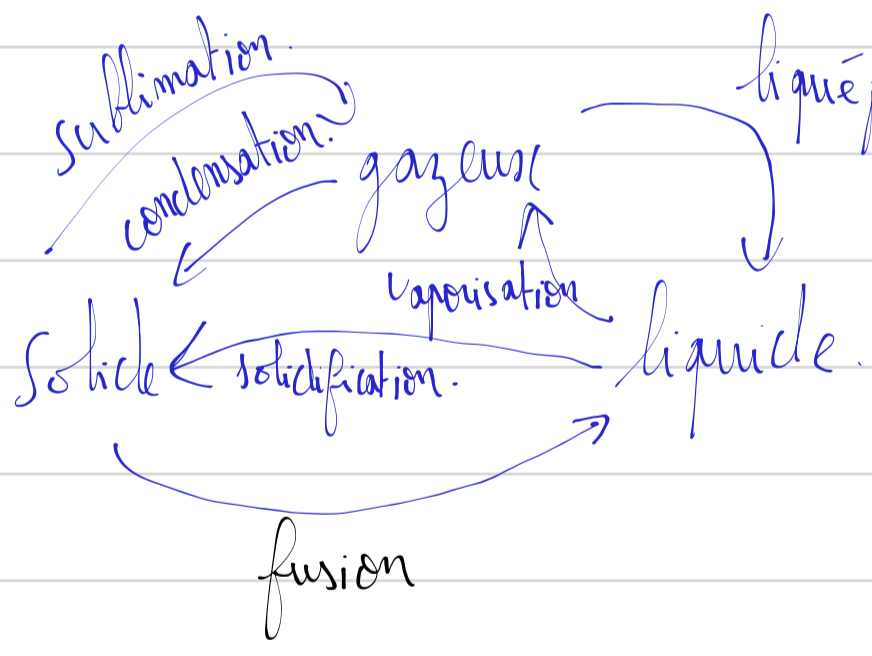 sublimation.
liqué
condensation.
gazeux
vaporisation
solide
solidification.
liquide.
fusion